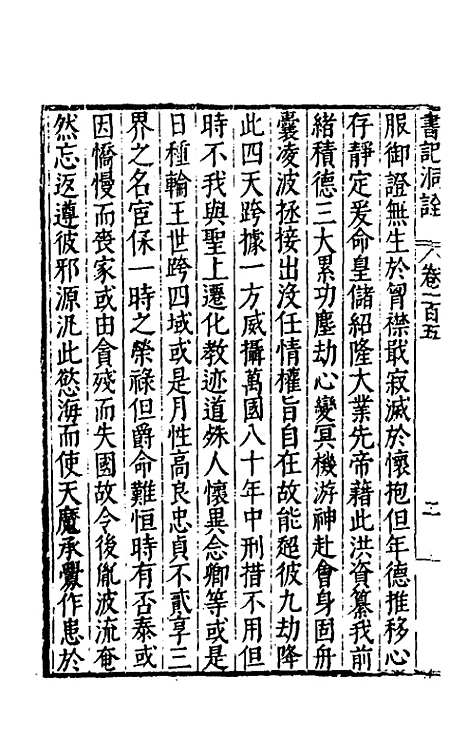 書記洞詮 卷一百五 二
服御證無生於胷襟戢寂滅於懷抱但年德推移心
存靜定爰命皇儲紹隆大業先帝藉此洪資纂我前
緒積德三大累功塵劫心變冥機游神赴會身固舟
囊凌波拯接出没任情權旨自在故能超彼九劫降
此四天跨據一方威攝萬國八十年中刑措不用但
時不我與聖上遷化教迹道殊人懷異念卿等或是
日種輪王世跨四域或是月性高良忠貞不貳享三
界之名宦保一時之榮祿但爵命難恒時有否泰或
因憍慢而喪家或由貪殘而失國故令後胤波流奄
然忘返遵彼邪源汎此慾海而使天魔承釁作患於